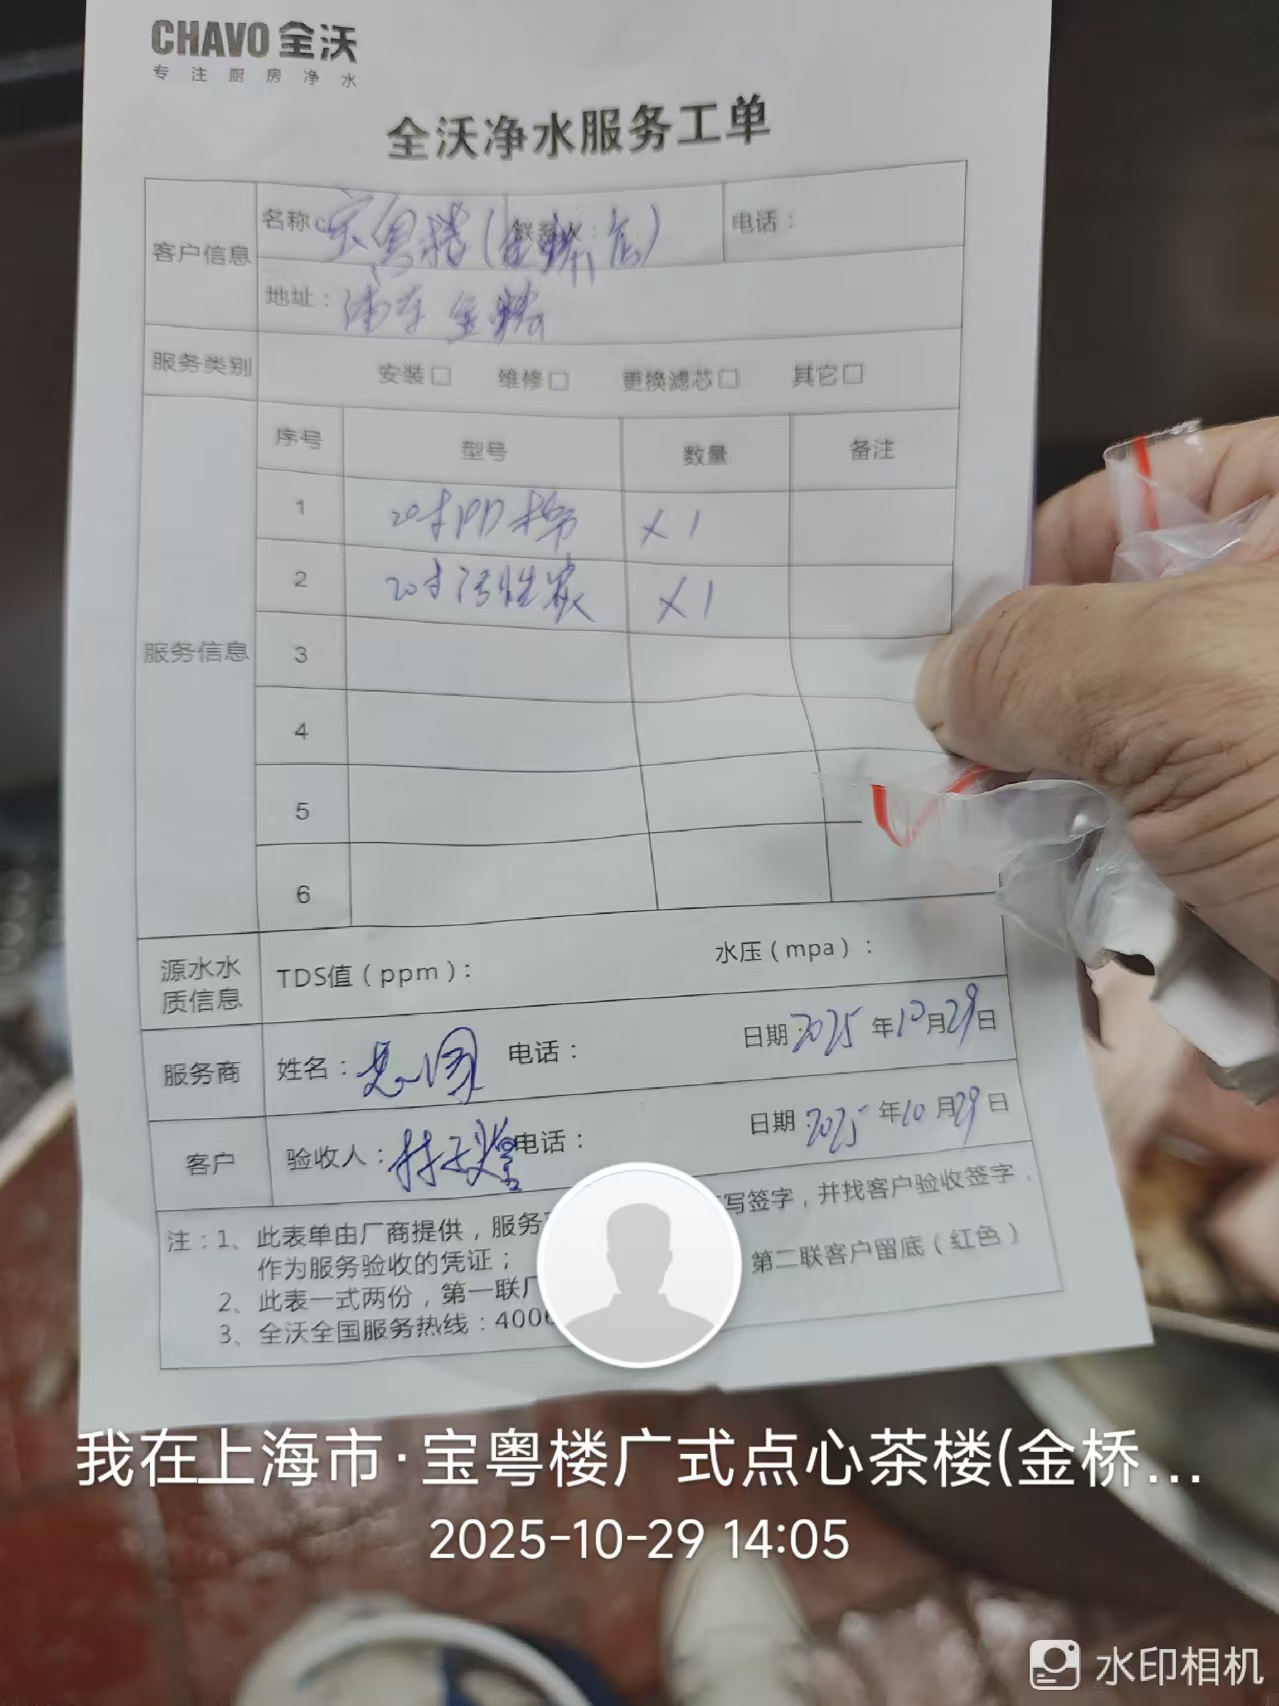 CHAVO 全沃
专注厨房净水
全沃净水服务工单
客户信息
名称 宝粤楼(金桥店)
电话：
地址：浦东金桥
服务类别
安装□ 维修□ 更换滤芯□ 其它□
服务信息
序号 型号 数量 备注
1 20寸PP棉 X1
2 20寸活性炭 X1
3
4
5
6
源水水质信息
TDS值（ppm）： 水压（mpa）：
服务商 姓名： 电话： 日期：2025年10月29日
客户 验收人： 电话： 日期：2025年10月29日
注：1、此表单由厂商提供，服务 写签字，并找客户验收签字，
作为服务验收的凭证；
2、此表一式两份，第一联厂 第二联客户留底（红色）
3、全沃全国服务热线：400
我在上海市·宝粤楼广式点心茶楼(金桥...
2025-10-29 14:05
水印相机